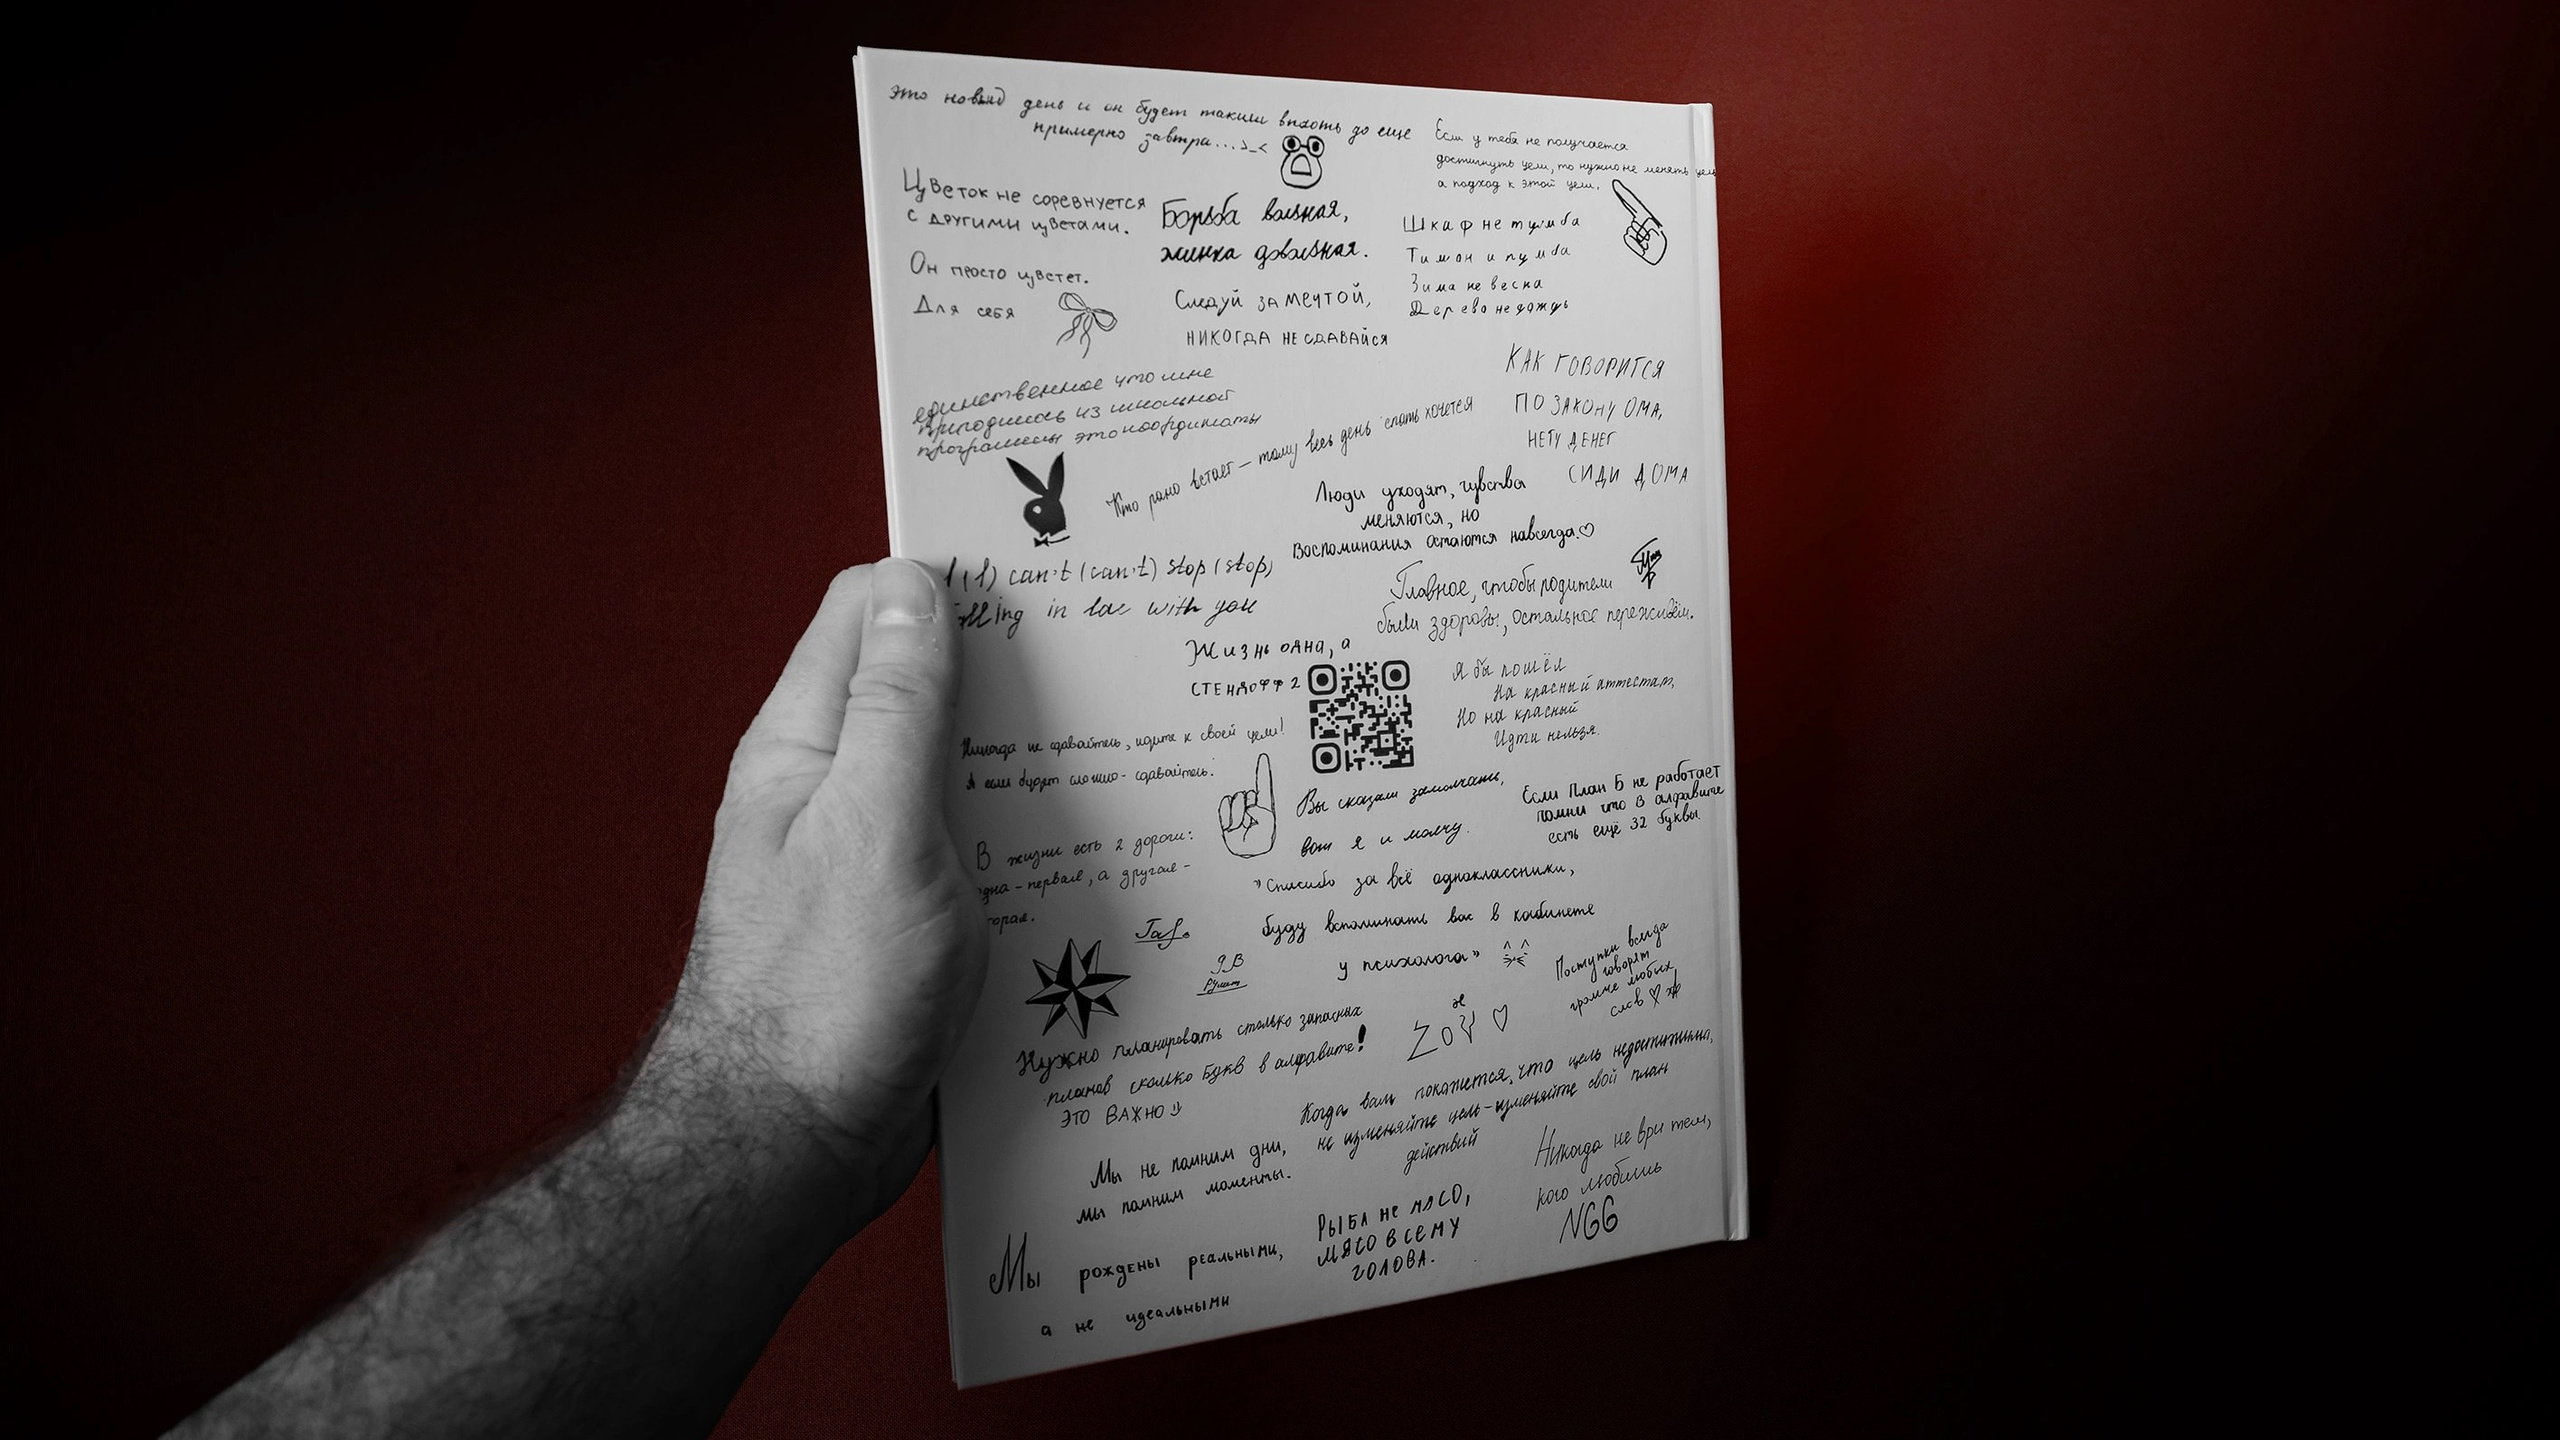 это новый день и он будет таким вплоть до еще
примерно завтра...>_<
Если у тебя не получается
достигнуть цели, то нужно не менять цель
а подход к этой цели.
Цветок не соревнуется
с другими цветами.
Он просто цветет.
Для себя
Борьба вольная,
жинка довольная.
Следуй за мечтой,
НИКОГДА НЕ СДАВАЙСЯ
Шкаф не тумба
Тимон и пумба
Зима не весна
Дерево не дождь
единственное что мне
пригодилось из школьной
программы это координаты
КАК ГОВОРИТСЯ
ПО ЗАКОНУ ОМА,
НЕТУ ДЕНЕГ
СИДИ ДОМА
Кто рано встает — тому весь день спать хочется
Люди уходят, чувства
меняются, но
воспоминания остаются навсегда.♡
I (I) can't (can't) stop (stop)
in lov with you
Главное, чтобы родители
были здоровы, остальное переживём.
Жизнь одна, а
СТЕНДОФФ 2
Я бы пошёл
На красный аттестат,
Но на красный
Идти нельзя.
Никогда не сдавайтесь, идите к своей цели!
А если будет сложно - сдавайтесь.
Вы сказали замолчать,
вот я и молчу.
Если План Б не работает
помни что в алфавите
есть ещё 32 буквы
В жизни есть 2 дороги:
одна - первая, а другая -
"Спасибо за всё одноклассники,
буду вспоминать вас в кабинете
у психолога"
9 В
Рулит
Поступки всегда
говорят
громче любых
слов ♡
Нужно планировать столько запасных
планов сколько букв в алфавите!
ЭТО ВАЖНО :)
Когда вам покажется, что цель недостижима,
не изменяйте цель - изменяйте свой план
действий
Мы не помним дни,
мы помним моменты.
Никогда не ври тем,
кого любишь
NGG
Мы рождены реальными,
а не идеальными
РЫБА НЕ МЯСО,
МЯСО ВСЕМУ
ГОЛОВА.